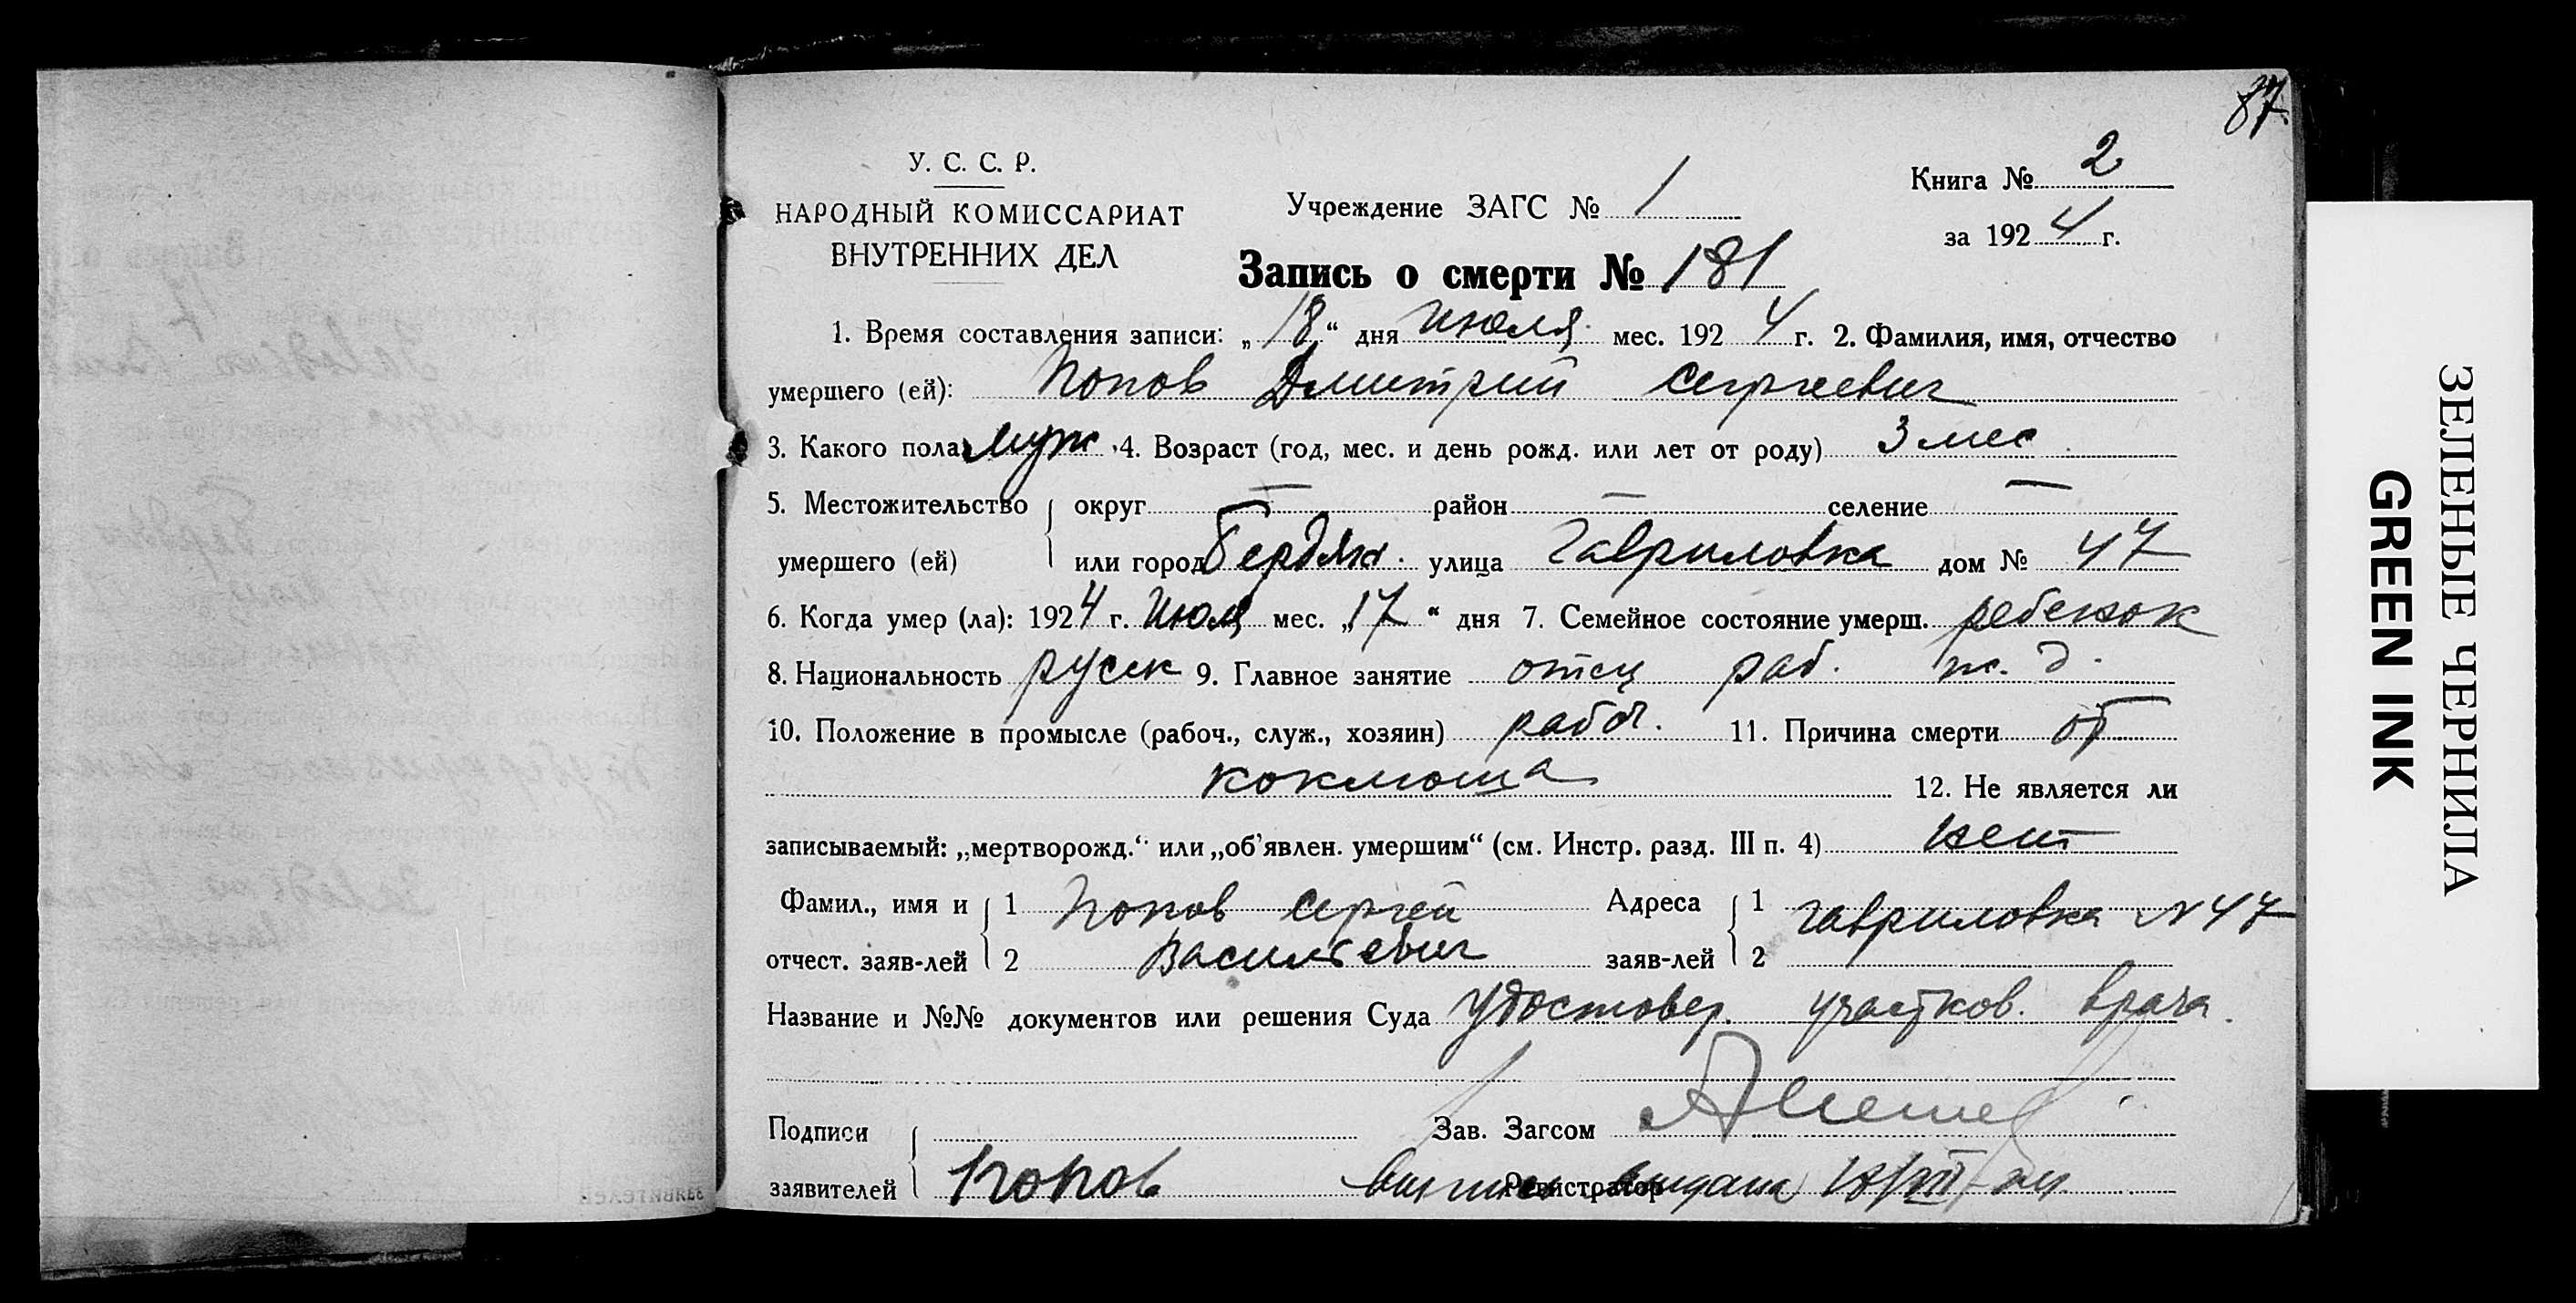 87
У. С. С. Р.
НАРОДНЫЙ КОМИССАРИАТ
ВНУТРЕННИХ ДЕЛ
Учреждение ЗАГС № 1
Книга № 2
за 1924 г.
Запись о смерти № 181
1. Время составления записи: „18“ дня июля мес. 1924 г. 2. Фамилия, имя, отчество
умершего (ей): Попов Дмитрий Сергеевич
3. Какого пола муж. 4. Возраст (год, мес. и день рожд. или лет от роду) 3 мес.
5. Местожительство округ — район — селение —
умершего (ей) или город Бердян. улица Гавриловка дом № 47
6. Когда умер (ла): 1924 г. Июля мес. „17“ дня 7. Семейное состояние умерш. ребенок
8. Национальность русск 9. Главное занятие отец раб. ж. д.
10. Положение в промысле (рабоч., служ., хозяин) рабоч. 11. Причина смерти от
коклюша 12. Не является ли
записываемый: „мертворожд.“ или „об'явлен. умершим“ (см. Инстр. разд. III п. 4) нет
Фамил., имя и 1 Попов Сергей Адреса 1 Гавриловка N 47
отчест. заяв-лей 2 Васильевич заяв-лей 2
Название и №№ документов или решения Суда Удостовер. участков. врача.
Подписи Зав. Загсом
заявителей Попов Регистратор выпись выдана 18/VII
ЗЕЛЕНЫЕ ЧЕРНИЛА
GREEN INK